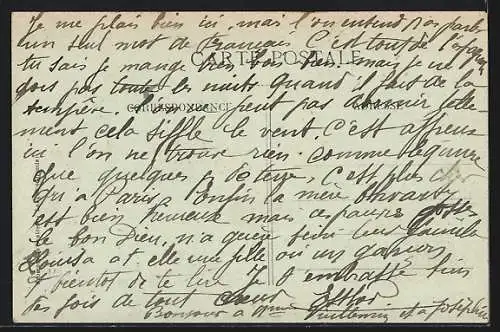 Je me plais bien ici, mais l'on entend pas parler
un seul mot de Français. C'est tout de l'espagnol
CARTE POSTALE
tu sais je mange bien, bois bien mais je ne
dors pas toutes les nuits quand il fait de la
CORRESPONDANCE
tempère l'on peut pas dormir telle
ment cela siffle le vent. c'est affreux
ici l'on ne trouve rien. comme légume
que quelques p de terre, c'est plus cher
qu'à Paris. Enfin la mère
est bien heureuse mais ces pauvres
le bon Dieu, n'a guère béni leur famille
Louisa a t elle une fille ou un garçon
A bientôt de te lire Je t embrasse bien
des fois de tout cœur Esther
Bonjour à Mme Guillemin et a Joséphine